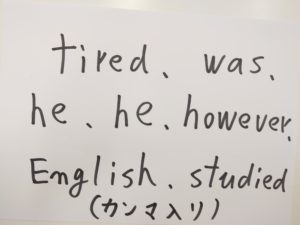 tired、was、
he、he、however、
English、studied
(カンマ入リ)